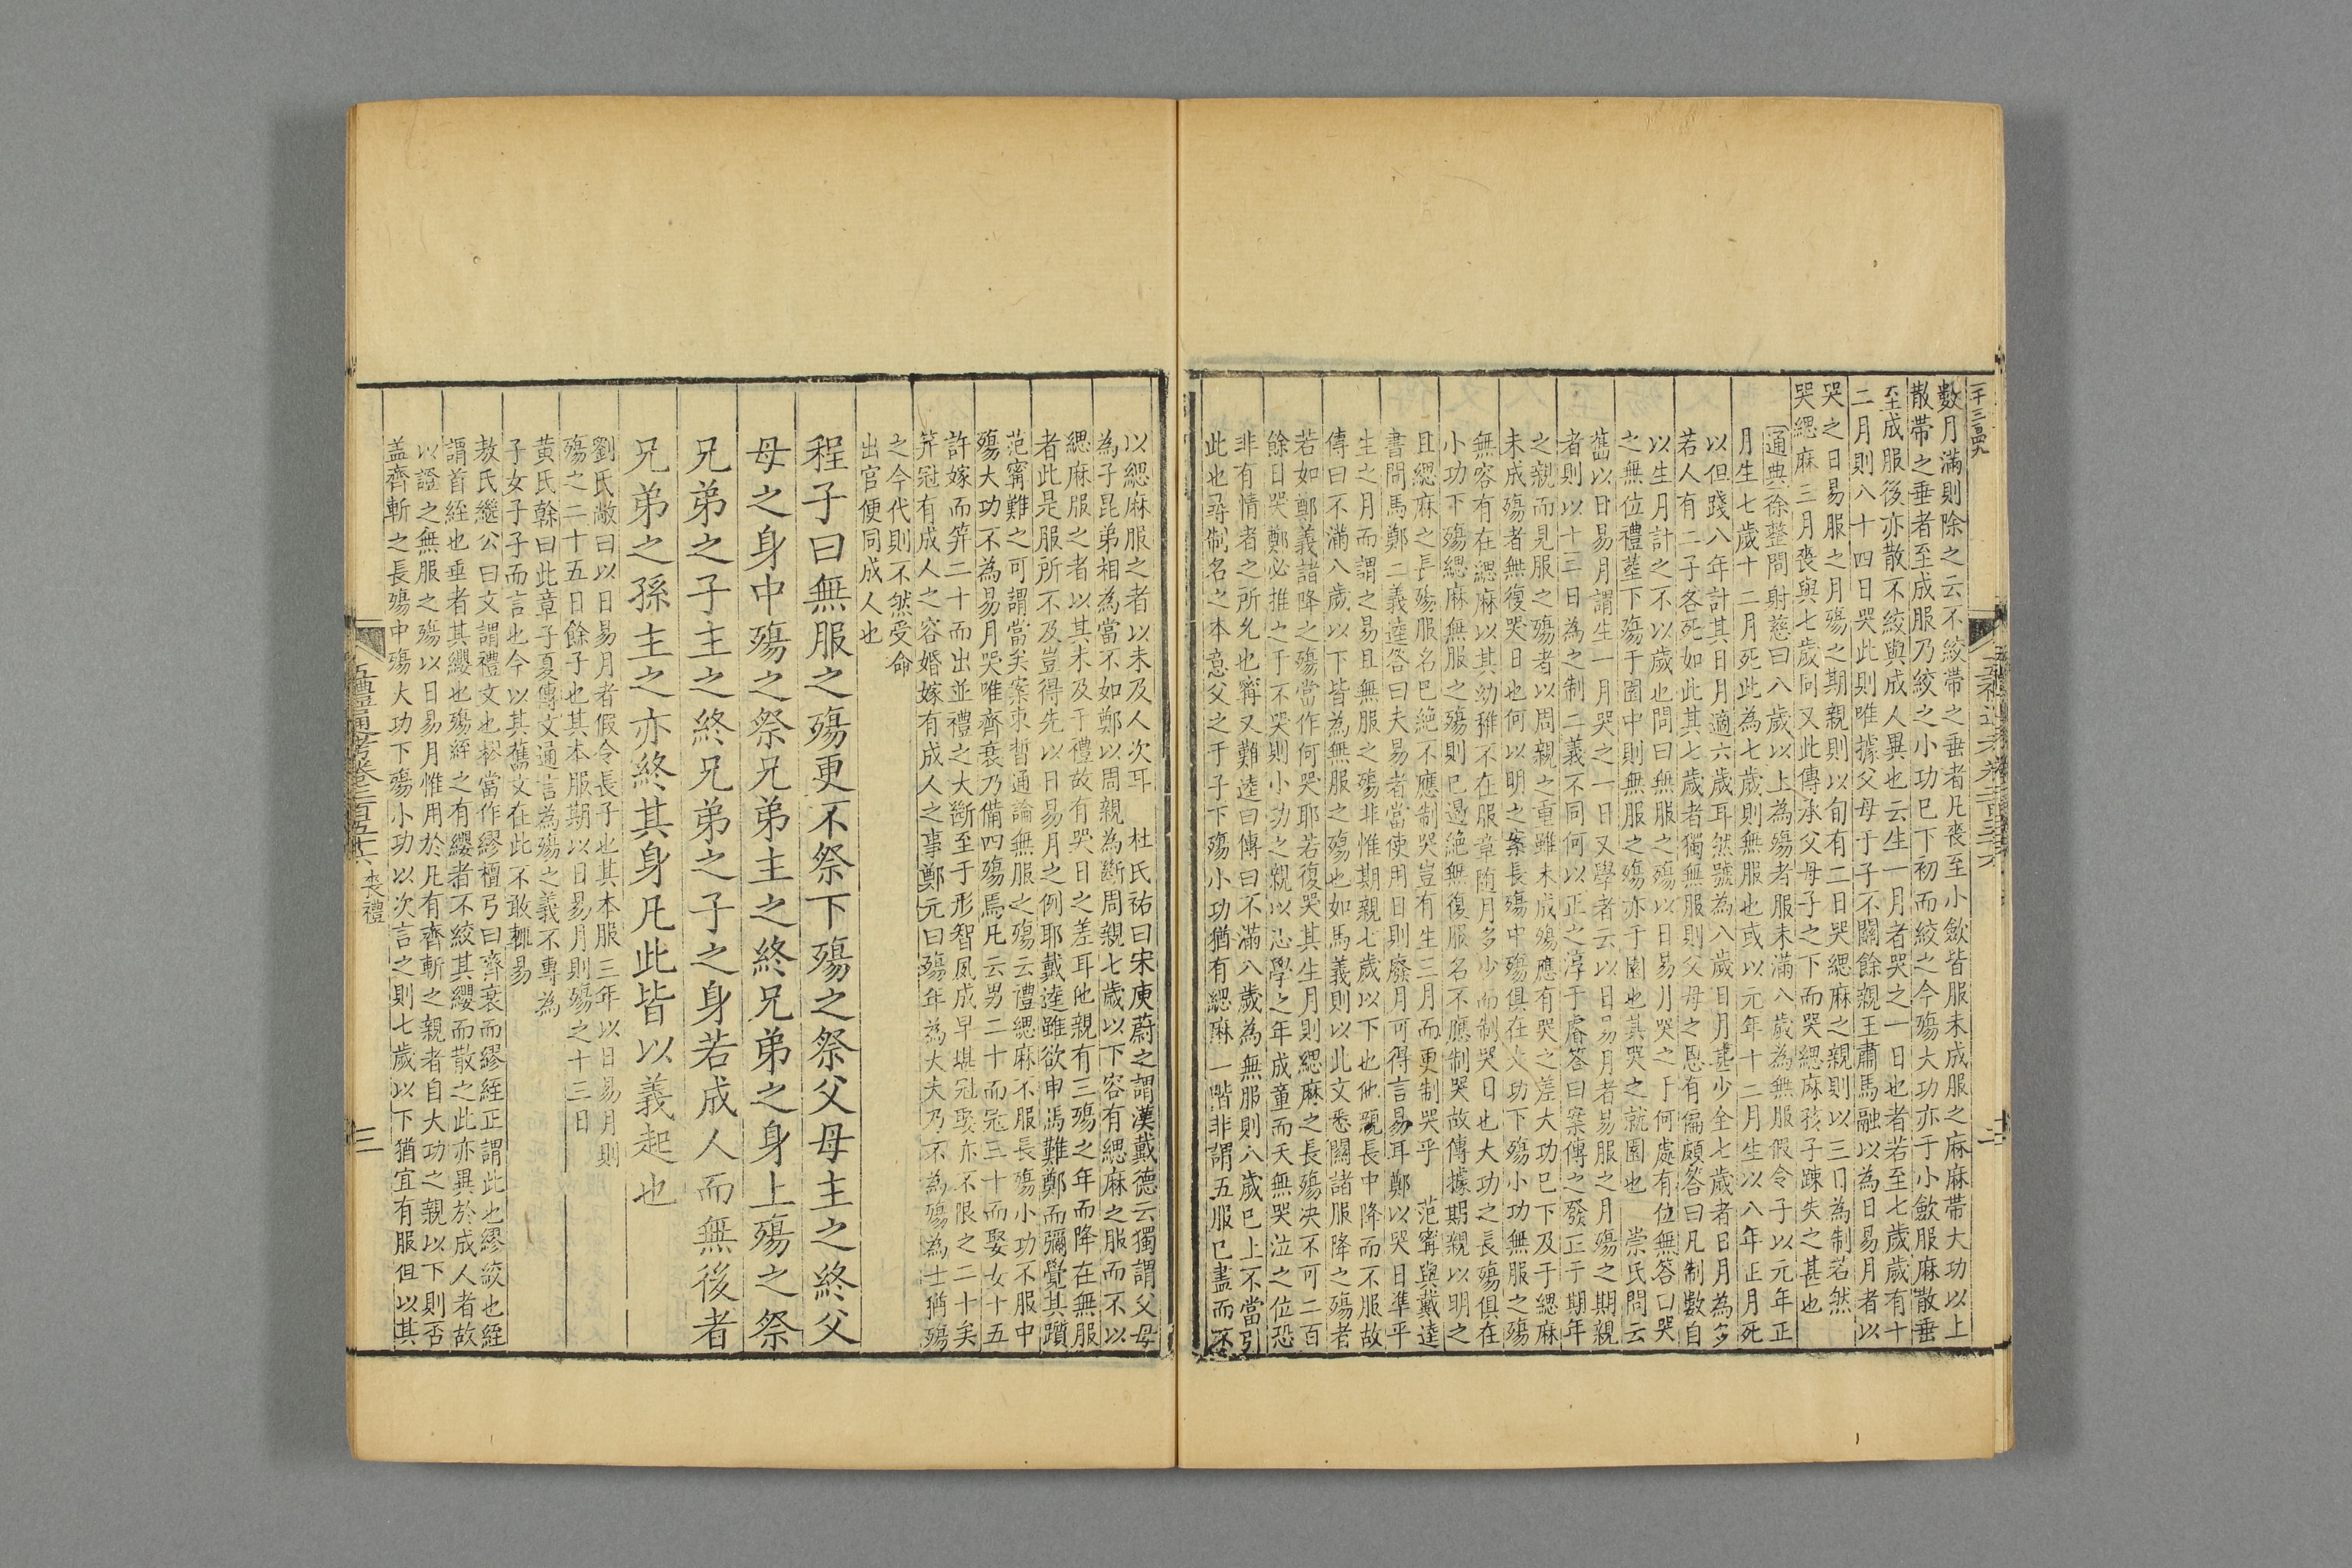 數月滿則除之云不絞帶之垂者凡喪至小斂皆服未成服之麻麻帶大功以上
散帶之垂者至成服乃絞之小功巳下初而絞之今殤大功亦于小斂服麻散垂
至成服後亦散不絞與成人異也云生一月者哭之一日也者若至七歲歲有十
二月則八十四日哭此則唯據父母于子不關餘親王肅馬融以為日易月者以
哭之日易服之月殤之期親則以旬有二日哭緦麻之親則以三日為制若然
哭緦麻三月喪與七歲同又此傳承父母子之下而哭緦麻孩子踈失之甚也
通典徐整問射慈曰八歲以上為殤者服未滿八歲為無服假令子以元年正
月生七歲十二月死此為七歲則無服也或以元年十二月生以八年正月死
以但踐八年計其日月適六歲耳然號為八歲日月甚少全七歲者日月為多
若人有二子各死如此其七歲者獨無服則父母之恩有偏頗答曰凡制數自
以生月計之不以歲也問曰無服之殤以日易月哭之于何處有位無答曰哭
之無位禮葬下殤于園中則無服之殤亦于園也其哭之就園也　崇氏問云
舊以日易月謂生一月哭之一日又學者云以日易月者易服之月殤之期親
者則以十三日為之制二義不同何以正之淳于睿答曰案傳之發正于期年
之親而見服之殤者以周親之重雖未成殤應有哭之差大功巳下及于緦麻
未成殤者無復哭日也何以明之案長殤中殤俱在大功下殤小功無服之殤
無容有在緦麻以其幼稚不在服章随月多少而制哭日也大功之長殤俱在
小功下殤緦麻無服之殤則巳過絶無復服名不應制哭故傳據期親以明之
且緦麻之長殤服名巳絶不應制哭豈有生三月而更制哭乎　范甯與戴逵
書問馬鄭二義逵答曰夫易者當使用日則廢月可得言易耳鄭以哭日準平
生之月而謂之易且無服之殤非惟期親七歲以下也他親長中降而不服故
傳曰不滿八歲以下皆為無服之殤也如馬義則以此文悉關諸服降之殤者
若如鄭義諸降之殤當作何哭耶若復哭其生月則緦麻之長殤決不可二百
餘日哭鄭必推之于不哭則小功之親以志學之年成童而夭無哭泣之位恐
非有情者之所允也甯又難逵曰傳曰不滿八歲為無服則八歲巳上不當引
此也尋制名之本意父之于子下殤小功猶有緦麻一階非謂五服巳盡而不
以緦麻服之者以未及人次耳　杜氏祐曰宋庾蔚之謂漢戴德云獨謂父母
為子昆弟相為當不如鄭以周親為斷周親七歲以下容有緦麻之服而不以
緦麻服之者以其未及于禮故有哭日之差耳他親有三殤之年而降在無服
者此是服所不及豈得先以日易月之例耶戴逵雖欲申馬難鄭而彌覺其躓
范甯難之可謂當矣案束晳通論無服之殤云禮緦麻不服長殤小功不服中
殤大功不為易月哭唯齊衰乃備四殤焉凡云男二十而冠三十而娶女十五
許嫁而笄二十而出並禮之大斷至于形智夙成早堪冠娶亦不限之二十矣
笄冠有成人之容婚嫁有成人之事鄭元曰殤年為大夫乃不為殤為士猶殤
之今代則不然受命
出官便同成人也
程子曰無服之殤更不祭下殤之祭父母主之終父
母之身中殤之祭兄弟主之終兄弟之身上殤之祭
兄弟之子主之終兄弟之子之身若成人而無後者
兄弟之孫主之亦終其身凡此皆以義起也
劉氏敞曰以日易月者假令長子也其本服三年以日易月則
殤之二十五日餘子也其本服期以日易月則殤之十三日
黃氏榦曰此章子夏傳文通言為殤之義不專為
子女子子而言也今以其舊文在此不敢輒易
敖氏繼公曰文謂禮文也樛當作繆檀弓曰齊衰而繆絰正謂此也繆絞也絰
謂首絰也垂者其纓也殤絰之有纓者不絞其纓而散之此亦異於成人者故
以證之無服之殤以日易月惟用於凡有齊斬之親者自大功之親以下則否
盖齊斬之長殤中殤大功下殤小功以次言之則七歲以下猶宜有服但以其
五禮通考卷二百五十六　喪禮
三